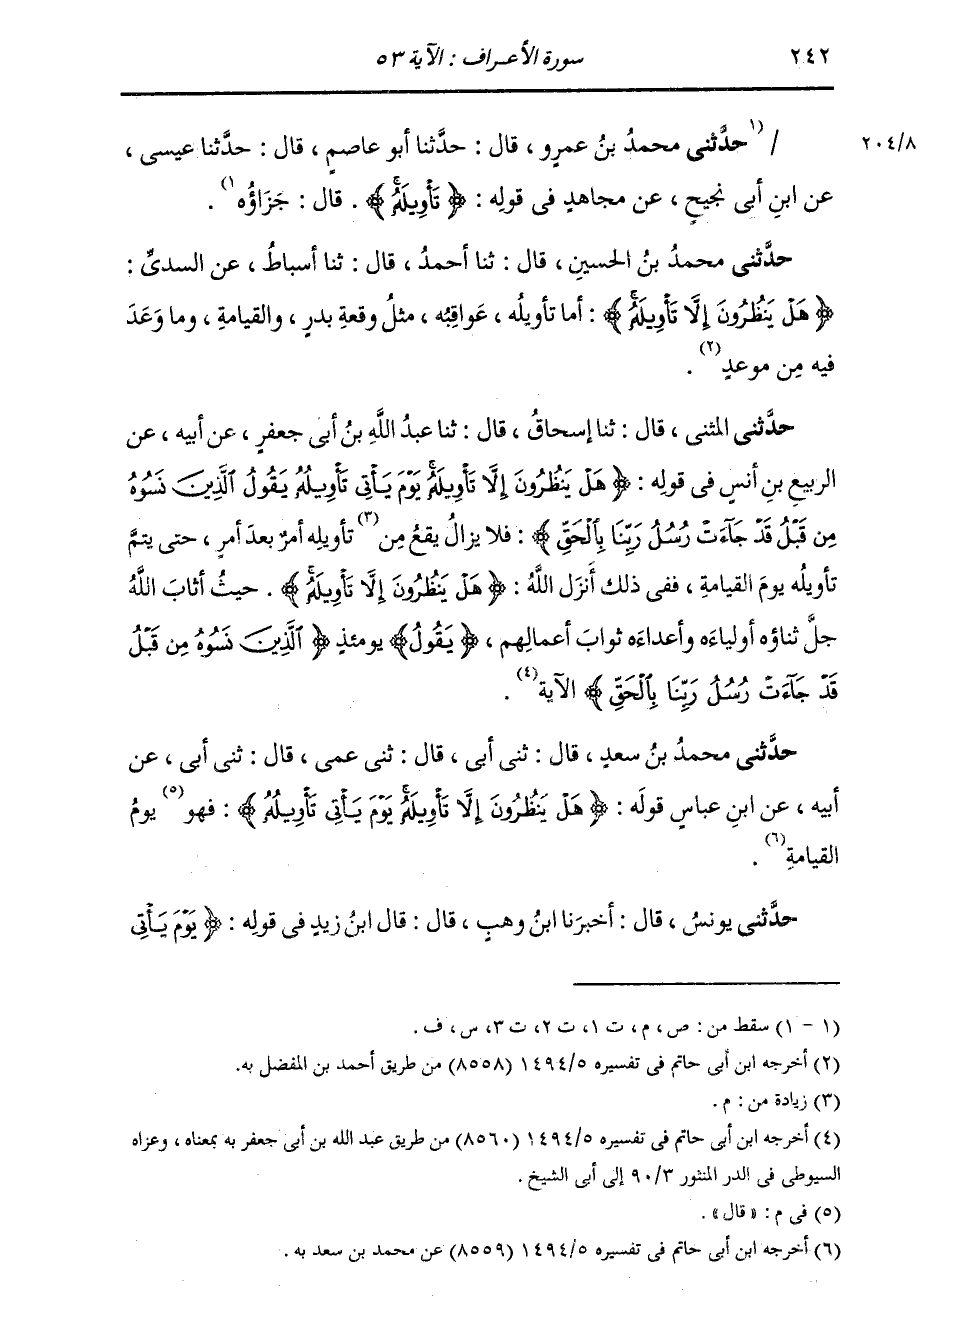 ٢٤٢ سورة الأعراف : الآية ٥٣
٢٠٤/٨ / ⁽¹حدَّثنى محمدُ بنُ عمرٍو ، قال : حدَّثنا أبو عاصمٍ ، قال : حدَّثنا عيسى ،
عن ابنِ أبى نجيحٍ ، عن مجاهدٍ فى قولِه : ﴿ تَأْوِيلَهُۥۚ ﴾ . قال : جَزَاؤُه¹⁾ .
حدَّثنى محمدُ بنُ الحسينِ ، قال : ثنا أحمدُ ، قال : ثنا أسباطُ ، عن السدىِّ :
﴿ هَلْ يَنظُرُونَ إِلَّا تَأْوِيلَهُۥۚ ﴾ : أما تأويلُه ، عَواقِبُه ، مثلُ وقعةِ بدرٍ ، والقيامةِ ، وما وَعَدَ
فيه مِن موعدٍ(٢) .
حدَّثنى المثنى ، قال : ثنا إسحاقُ ، قال : ثنا عبدُ اللَّهِ بنُ أبى جعفرٍ ، عن أبيه ، عن
الربيعِ بنِ أنسٍ فى قولِه : ﴿ هَلْ يَنظُرُونَ إِلَّا تَأْوِيلَهُۥۚ يَوْمَ يَأْتِى تَأْوِيلُهُۥ يَقُولُ ٱلَّذِينَ نَسُوهُ
مِن قَبْلُ قَدْ جَآءَتْ رُسُلُ رَبِّنَا بِٱلْحَقِّ ﴾ : فلا يزالُ يقعُ مِن(٣) تأويلِه أمرٌ بعدَ أمرٍ ، حتى يتمَّ
تأويلُه يومَ القيامةِ ، ففى ذلك أَنزَل اللَّهُ : ﴿ هَلْ يَنظُرُونَ إِلَّا تَأْوِيلَهُۥۚ ﴾ . حيثُ أثابَ اللَّهُ
جلَّ ثناؤه أولياءَه وأعداءَه ثوابَ أعمالِهم ، ﴿ يَقُولُ ﴾ يومئذٍ ﴿ ٱلَّذِينَ نَسُوهُ مِن قَبْلُ
قَدْ جَآءَتْ رُسُلُ رَبِّنَا بِٱلْحَقِّ ﴾ الآية(٤) .
حدَّثنى محمدُ بنُ سعدٍ ، قال : ثنى أبى ، قال : ثنى عمى ، قال : ثنى أبى ، عن
أبيه ، عن ابنِ عباسٍ قولَه : ﴿ هَلْ يَنظُرُونَ إِلَّا تَأْوِيلَهُۥۚ يَوْمَ يَأْتِى تَأْوِيلُهُۥ ﴾ : فهو(٥) يومُ
القيامةِ(٦) .
حدَّثنى يونسُ ، قال : أخبرَنا ابنُ وهبٍ ، قال : قال ابنُ زيدٍ فى قولِه : ﴿ يَوْمَ يَأْتِى
(١ - ١) سقط من : ص ، م ، ت ١، ت ٢، ت ٣، س ، ف .
(٢) أخرجه ابن أبى حاتم فى تفسيره ١٤٩٤/٥ (٨٥٥٨) من طريق أحمد بن المفضل به.
(٣) زيادة من : م .
(٤) أخرجه ابن أبى حاتم فى تفسيره ١٤٩٤/٥ (٨٥٦٠) من طريق عبد الله بن أبى جعفر به بمعناه ، وعزاه
السيوطى فى الدر المنثور ٩٠/٣ إلى أبى الشيخ .
(٥) فى م : « قال » .
(٦) أخرجه ابن أبى حاتم فى تفسيره ١٤٩٤/٥ (٨٥٥٩) عن محمد بن سعد به .